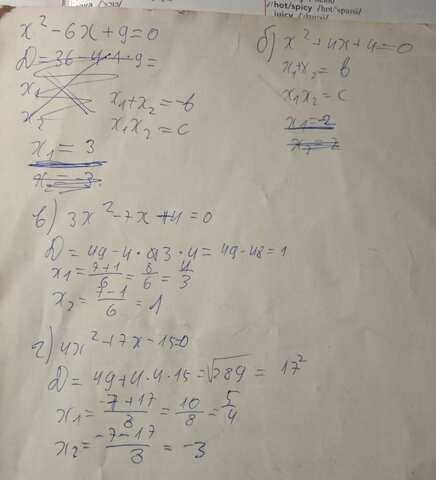 x² - 6x + 9 = 0
D = 36 - 4·1·9 =
x₁
x₂
x₁ + x₂ = -b
x₁x₂ = c
x₁ = 3
x₂ = -3
б) x² + 4x + 4 = 0
x₁ + x₂ = b
x₁x₂ = c
x₁ = 2
x₂ = 2
в) 3x² - 7x + 4 = 0
D = 49 - 4 · 3 · 4 = 49 - 48 = 1
x₁ = (7+1)/6 = 8/6 = 4/3
x₂ = (7-1)/6 = 1
г) 4x² + 7x - 15 = 0
D = 49 + 4·4·15 = √289 = 17²
x₁ = (-7+17)/8 = 10/8 = 5/4
x₂ = (-7-17)/8 = -3